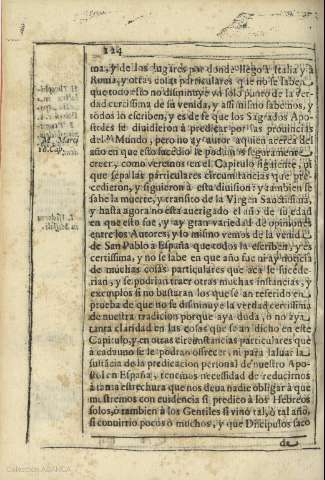 224
ma, y de los lugares por donde llego à Italia y à
Roma, y otras cosas particulares que no se saben
que todo esso no disminuye vn solo punto de la ver-
dad certissima de su venida, y assi mismo sabemos, y
todos lo escriben, y es de fe que los Sagrados Apos-
toles se diuidieron à predicar por las prouincias
del Mundo, pero no ay autor aquien acerca del
año en que esto sucedio se podamos seguramente
creer, como veremos en el Capitulo siguiente, ni
que sepa las particulares circunstancias que pre-
cedieron, y siguieron à esta diuision: y tambien se
sabe la muerte, y transito de la Virgen Santissima,
y hasta agora no esta aueriguado el año de su edad
en que esto fue, y ay gran variedad de opiniones
entre los Autores, y lo mismo vemos de la venida
de San Pablo a España que todos la escriben, y es
certissima, y no se sabe en que año fue ni ay noticia
de muchas cosas particulares que acà le sucede-
rian, y se podrian traer otras muchas instancias, y
exemplos si no bastaran los que se an referido en
prueba de que no se disminuye la verdad certissima
de nuestra tradicion porque aya duda, ò no aya
tanta claridad en las cosas que se an dicho en este
Capitulo, y en otras circunstancias particulares que
à cada vno se le podran ofrecer, ni para saluar la
sustãcia de la predicacion personal de nuestro Apos-
tol en España, tenemos necesidad de reducirnos
à tanta estrechura que nos deua nadie obligar à que
mostremos con euidencia si predicò à los Hebreos
solos, ò tambien à los Gentiles si vino tal, ò tal año,
si conuirtio pocos ò muchos, y que Discipulos saco
de
Colección ABANCA